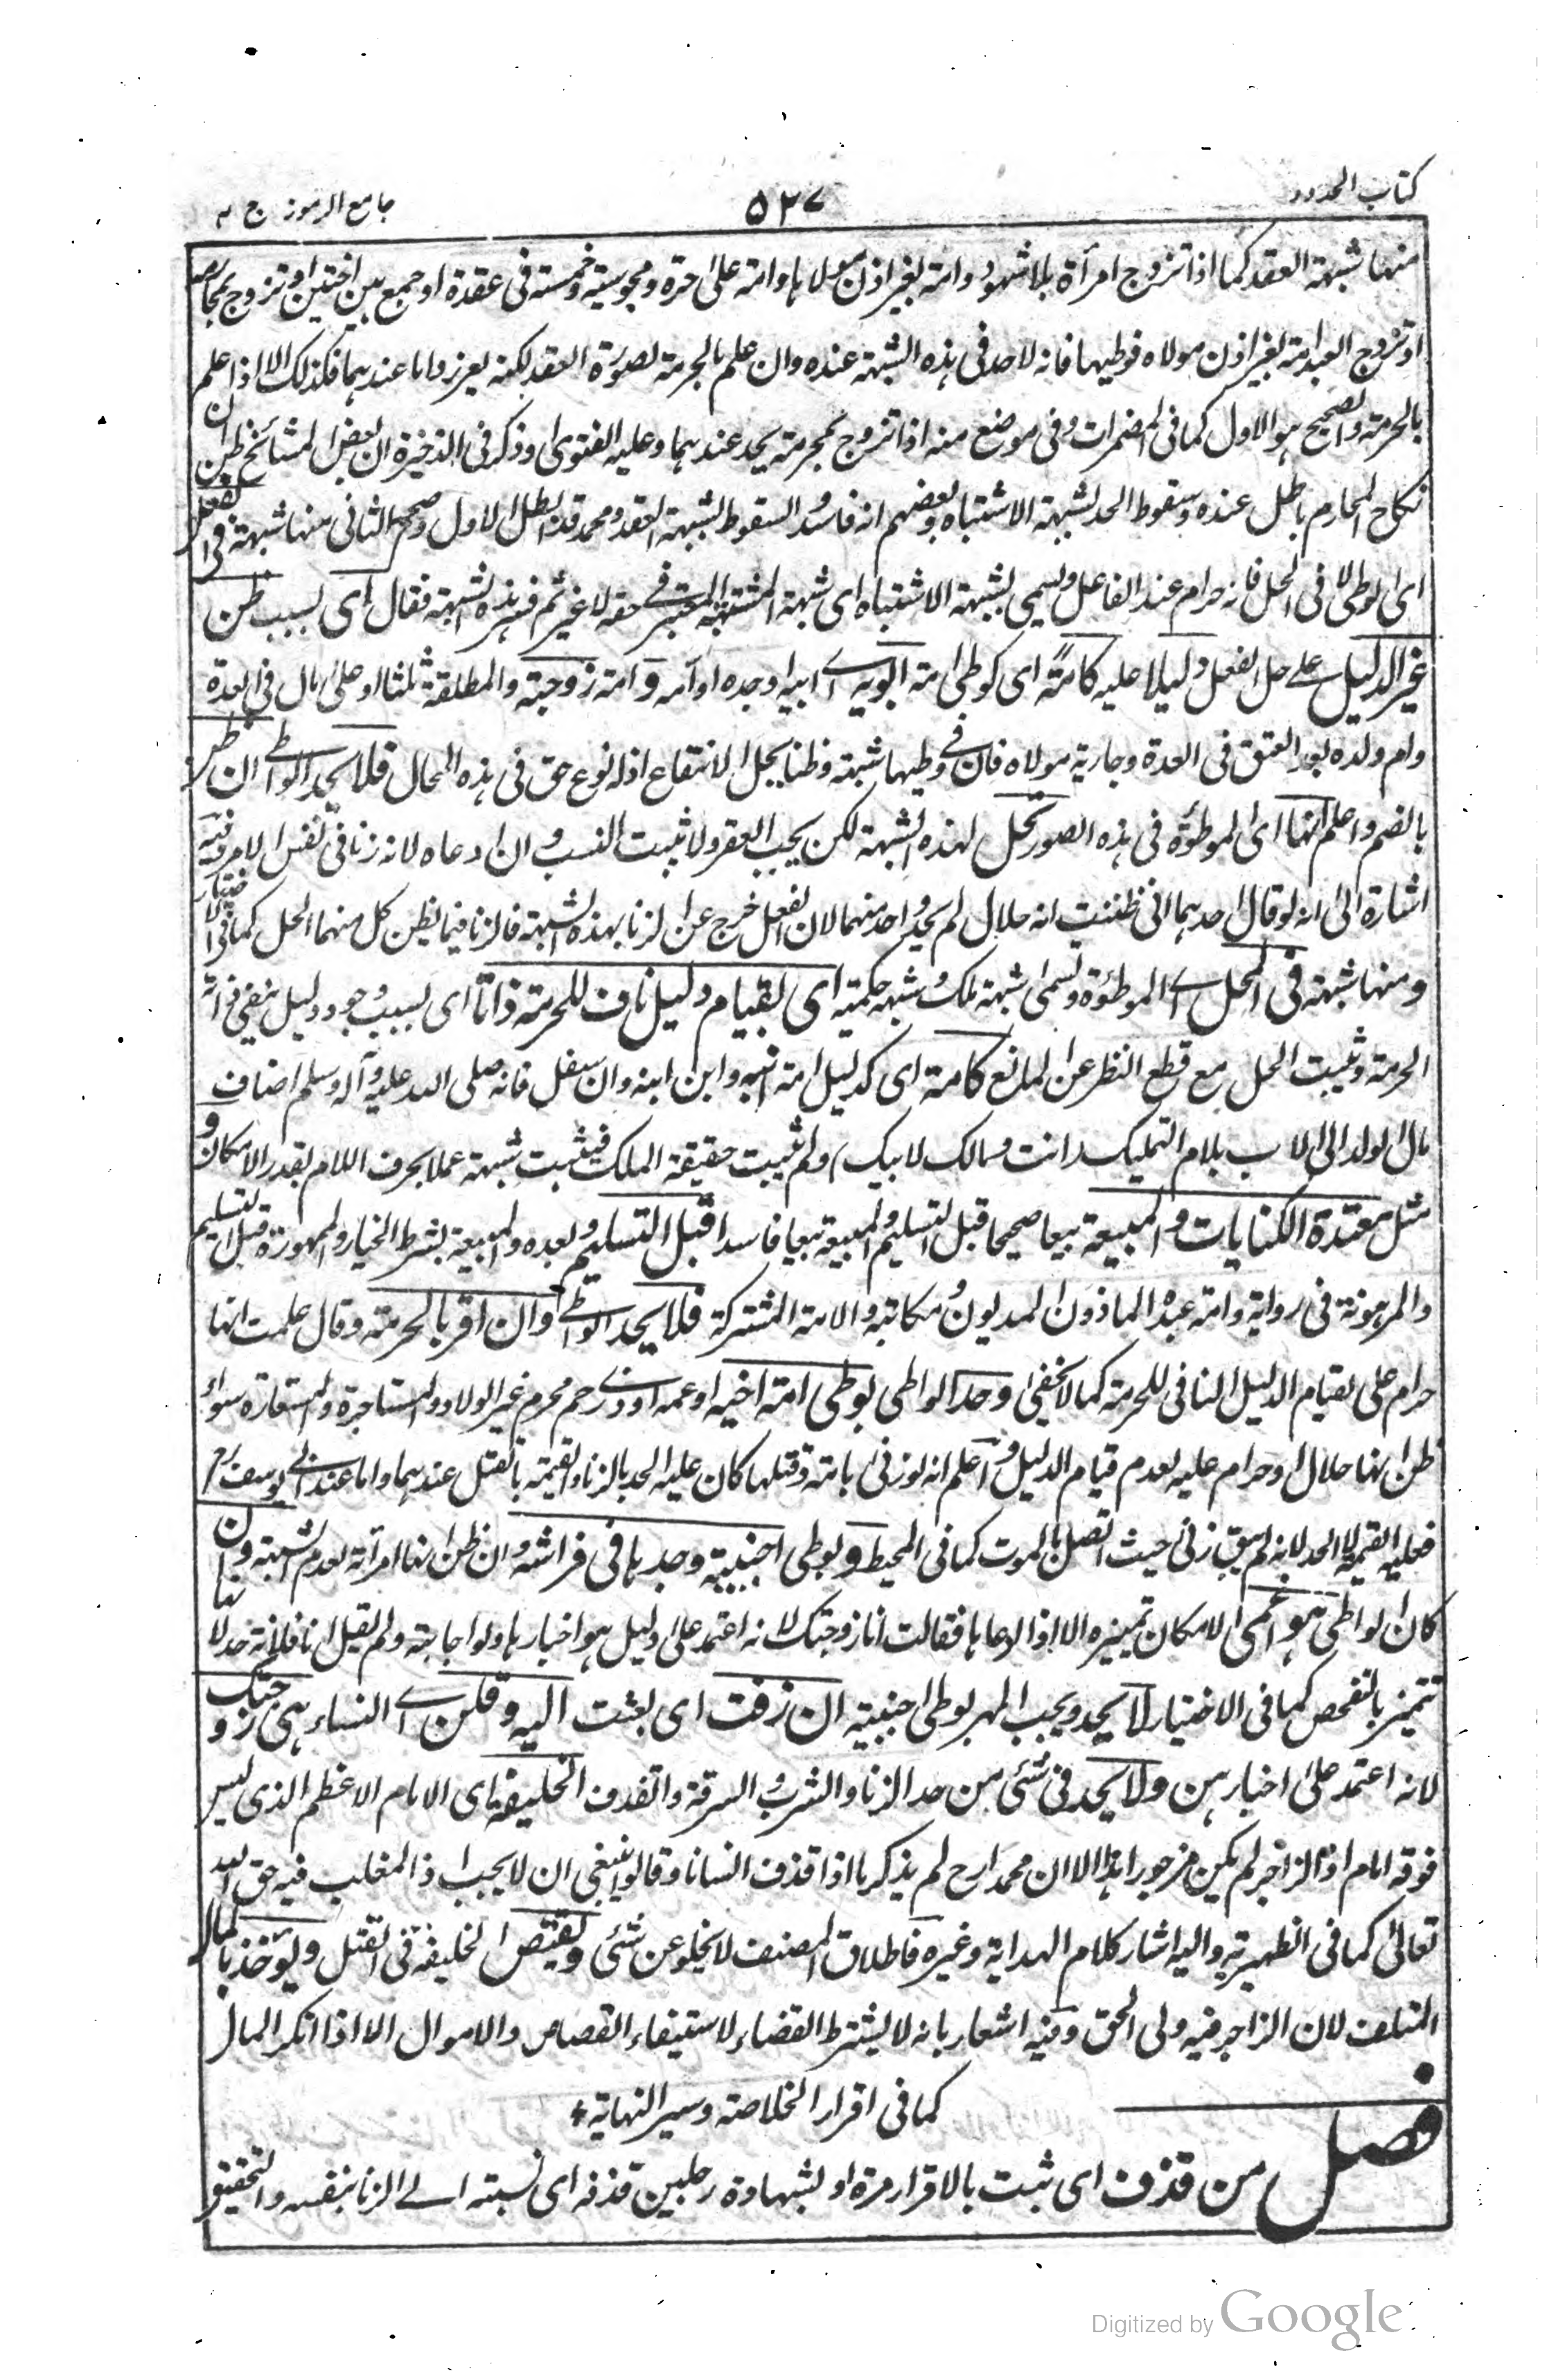 كتاب الحدود
٥٢٧
جامع الرموز ج ٢
منها شبهة العقد كما اذا تزوج امرأة بلا شهود وامة بغير اذن مولاها وامة على حرة ومجوسية وخمسة فى عقدة او جمع بين اختين او تزوج بمحارمه
او تزوج العبد امة بغير اذن مولاه فوطيها فانه لا حد فى هذه الشبهة عنده وان علم بالحرمة لصورة العقد لكنه يعزر واما عندهما فكذلك الا اذا علم
بالحرمة والصحيح هو الاول كما فى المضمرات وفى موضع منه اذا تزوج بمحرمة يحد عندهما وعليه الفتوى وذكر فى الذخيرة ان بعض المشائخ ظن ان
نكاح المحارم باطل عنده وسقوط الحد لشبهة الاشتباه وبعضهم انه فاسد والسقوط لشبهة العقد ومحمد قد ابطل الاول وصحح الثانى منها شبهة فى الفعل
اى الوطى لا فى المحل فانه حرام عند الفاعل ويسمى بشبهة الاشتباه اى شبهة المشتبه المعتبر فى حقه لا غير ثم فسر هذه الشبهة فقال اى بسبب ظن
غير الدليل على حل الفعل دليلا عليه كامة اى كوطى امة ابويه اى ابيه او جده او امه وامة زوجته والمطلقة ثلثا او على مال فى العدة
وام ولده بعد العتق فى العدة وجارية مولاه فان فى وطيها شبهة وظنا بحل الانتفاع اذ له نوع حق فى هذه المحال فلا يحد الواطى ان ظن
بالضم واعلم انها اى الموطوءة فى هذه الصور تحل لهذه الشبهة لكن يجب العقر ولا يثبت النسب وان ادعاه لانه زنا فى نفس الامر وفيه
اشارة الى انه لو قال احدهما انى ظننت انه حلال لم يحد واحد منهما لان الفعل خرج عن الزنا بهذه الشبهة فالزنا فيما يظن كل منهما الحل كما فى الاختيار
ومنها شبهة فى المحل اى الموطوءة وتسمى شبهة ملك وشبهة حكمية اى بقيام دليل ناف للحرمة ذاتا اى بسبب وجود دليل ينفى فى ذاته
الحرمة ويثبت الحل مع قطع النظر عن المانع كامة اى كدليل امة ابنه وابن ابنه وان سفل فانه صلى الله عليه وآله وسلم اضاف
مال الولد الى الاب بلام التمليك (انت ومالك لابيك) ولم يثبت حقيقة الملك فيثبت شبهة عملا بحرف اللام بقدر الامكان و
مثل معتدة الكنايات والمبيعة بيعا صحيحا قبل التسليم والمبيعة بيعا فاسدا قبل التسليم وبعده والمبيعة بشرط الخيار والممهورة قبل التسليم
والمرهونة فى رواية وامة عبده الماذون المديون ومكاتبه والامة المشتركة فلا يحد الواطى وان اقر بالحرمة وقال علمت انها
حرام على لقيام الدليل النافى للحرمة كما لا يخفى وحد الواطى بوطى امة اخيه او عمه او ذى رحم محرم غير الولاد والمستاجرة والمستعارة سواء
ظن انها حلال او حرام عليه لعدم قيام الدليل واعلم انه لو زنى بامة وقتلها كان عليه الحد بالزنا والقيمة بالقتل عندهما واما عند ابى يوسف رح
فعليه القيمة لا الحد لانه لم يبق زنى حيث اتصل بالموت كما فى المحيط وبوطى اجنبية وجدها فى فراشه وان ظن انها امرأته لعدم الشبهة وان
كان الواطى هو اعمى لامكان تمييزه الا اذا دعاها فقالت انا زوجتك لانه اعتمد على دليل هو اخبارها ولو اجابته ولم يقل انا فلانة حد لانها
تتميز بالتفحص كما فى الاختيار لا يحد ويجب المهر بوطى اجنبية ان زفت اى بعثت اليه وقلن اى النساء هى زوجتك
لانه اعتمد على اخبارهن ولا يحد فى شئ من حد الزنا والشرب والسرقة والقذف الخليفة اى الامام الاعظم الذى ليس
فوقه امام اذ الزاجر لم يكن مزجورا هذا الا ان محمدا رح لم يذكر ما اذا قذف انسانا وقالوا ينبغى ان لا يجب اذ المغلب فيه حق الله
تعالى كما فى الظهيرية واليه اشار كلام الهداية وغيره فاطلاق المصنف لا يخلو عن شئ ويقتص الخليفة فى القتل ويؤخذ بالمال
المتلف لان الزاجر فيه ولى الحق وفيه اشعار بانه لا يشترط القضاء لاستيفاء القصاص والاموال الا اذا انكر المال
كما فى اقرار الخلاصة وسير النهاية
فصل من قذف اى ثبت بالاقرار مرة او بشهادة رجلين قذفه اى نسبته الى الزنا بنفسه والتحقيق
Digitized by Google